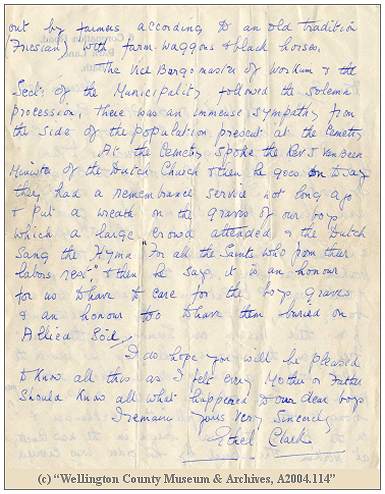 out by farmers according to an old tradition
(Friesian) with farm waggons & black horses.
The Vice Burgomaster of Workum & the
Sect: of the Municipality followed the solemn
procession, there was an immense sympathy from
the side of the population present at the Cemetery
At the Cemetery spoke the Rev. J Van
Minister of the Dutch Church & then he goes on to say
they had a remembrance service not long ago
& put a wreath on the graves of our boys
which a large crowd attended & the Dutch
Sang the Hymn "For all the Saints who from their
labors rest." & then he says it is an honour
for us to have to care for the boys graves
& an honour too to have them buried on
Allied Soil,
I do hope you will be pleased
to know all this as I felt every Mother or Father
Should know all what happened to our dear boys
I remain yours Very Sincerely
Ethel Clark
(c) "Wellington County Museum & Archives, A2004.114"